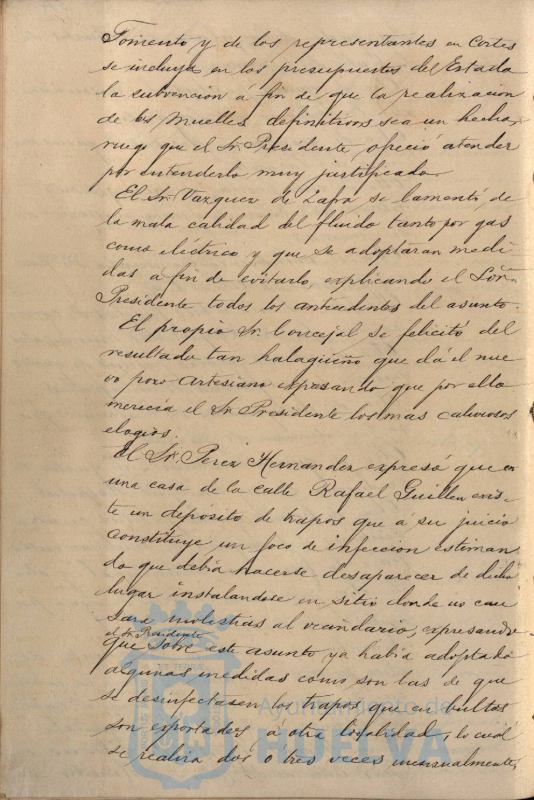 Fomento y de los representantes en Cortes
se incluya en los presupuestos del Estado
la subvencion á fin de que la realizacion
de los Muelles definitivos sea un hecho,
ruego que el Sr. Presidente, ofreció atender
por entenderlo muy justificado.
El Sr. Vazquez de Zafra se lamentó de
la mala calidad del fluido tanto por gas
como eléctrico y que se adoptaran medi
das a fin de evitarlo, explicando el Señor
Presidente todos los antecedentes del asunto.
El propio Sr. Concejal se felicitó del
resultado tan halagüeño que dá el nue
vo pozo artesiano expresando que por ello
merecia el Sr. Presidente los mas calurosos
elogios.
El Sr. Perez Hernandez expresó que en
una casa de la calle Rafael Guillen exis-
te un depósito de trapos que á su juicio
constituye un foco de infeccion estiman
do que debia hacerse desaparecer de dicho
lugar instalandose en sitio donde no cau
sara molestias al vecindario, expresando
el Sr. Presidente
que sobre este asunto ya habia adoptado
algunas medidas como son las de que
se desinfectasen los trapos que en bultos
son exportados á otra localidad, lo cuál
se realiza dos ó tres veces mensualmente,
Ayuntamiento de
HUELVA